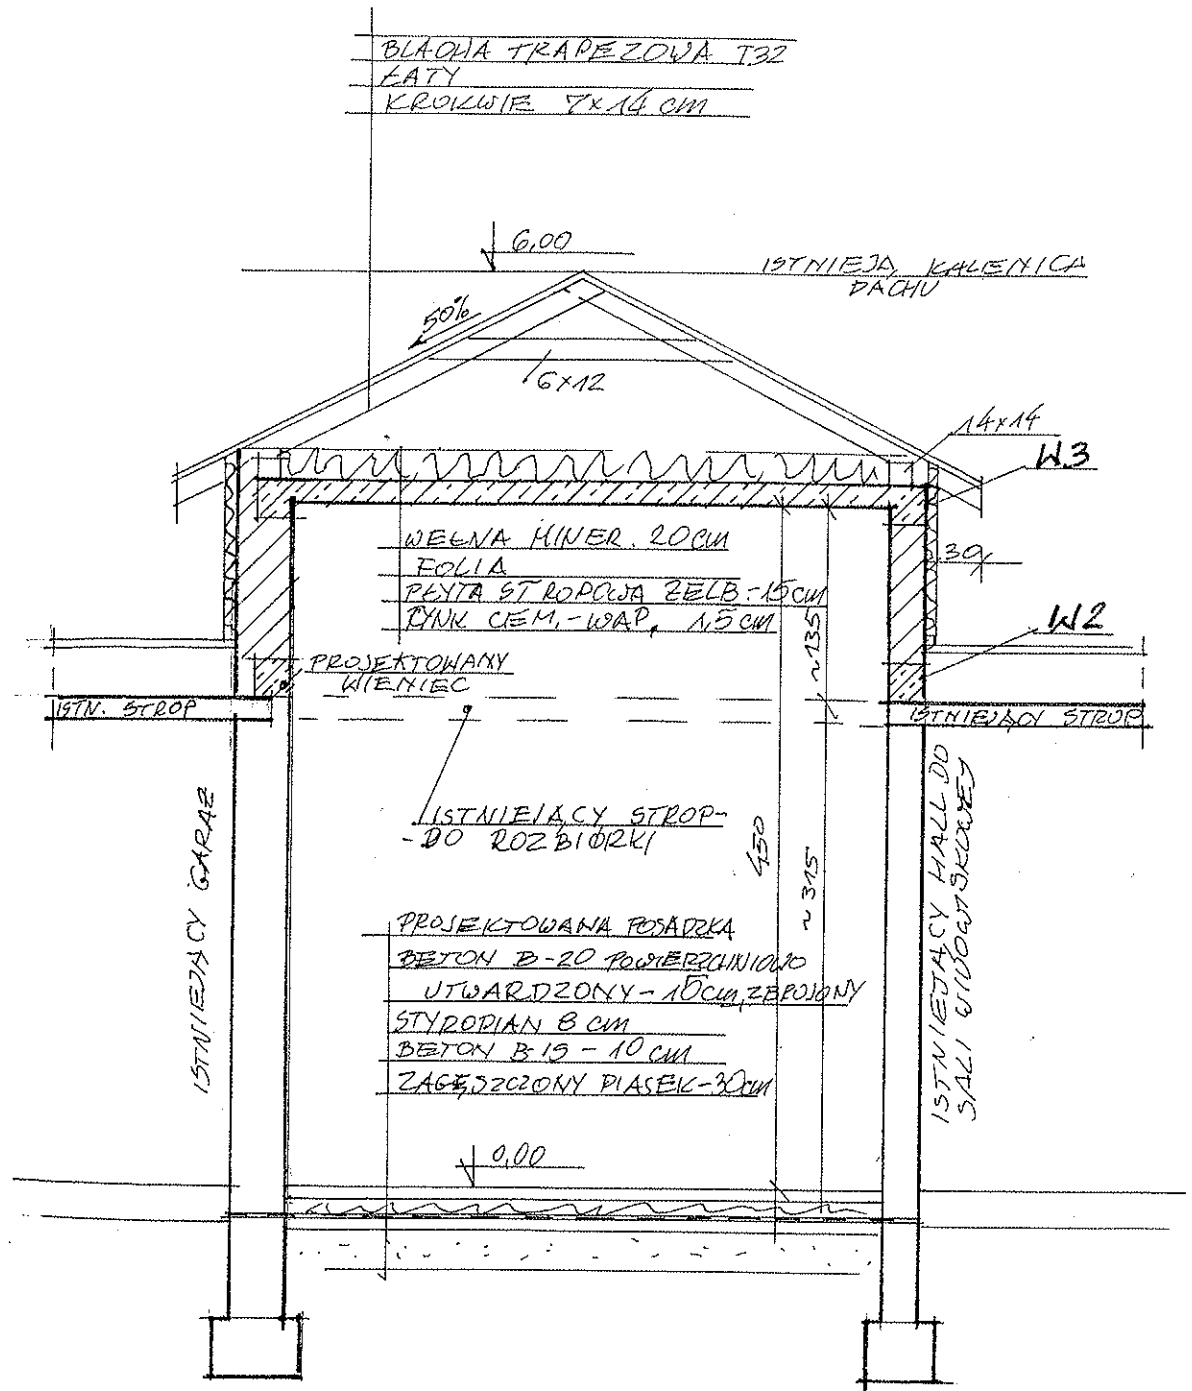 BLACHA TRAPEZOWA T32
ŁATY
KROKWIE 7x14 cm
6,00
ISTNIEJĄ, KALENICA
DACHU
50%
6x12
14x14
W.3
WEŁNA MINER. 20cm
FOLIA
PŁYTA STROPOWA ŻELB.-15cm
TYNK CEM.-WAP. 1,5cm
30
W2
~135
PROJEKTOWANY
WIENIEC
ISTN. STROP
ISTNIEJĄCY STROP
ISTNIEJĄCY STROP-
-DO ROZBIÓRKI
450
~315
ISTNIEJĄCY GARAŻ
ISTNIEJĄCY HALL DO
SALI WIDOWISKOWEJ
PROJEKTOWANA POSADZKA
BETON B-20 POWIERZCHNIOWO
UTWARDZONY-10cm, ZBROJONY
STYROPIAN 8 cm
BETON B-15 - 10 cm
ZAGĘSZCZONY PIASEK-30cm
0,00